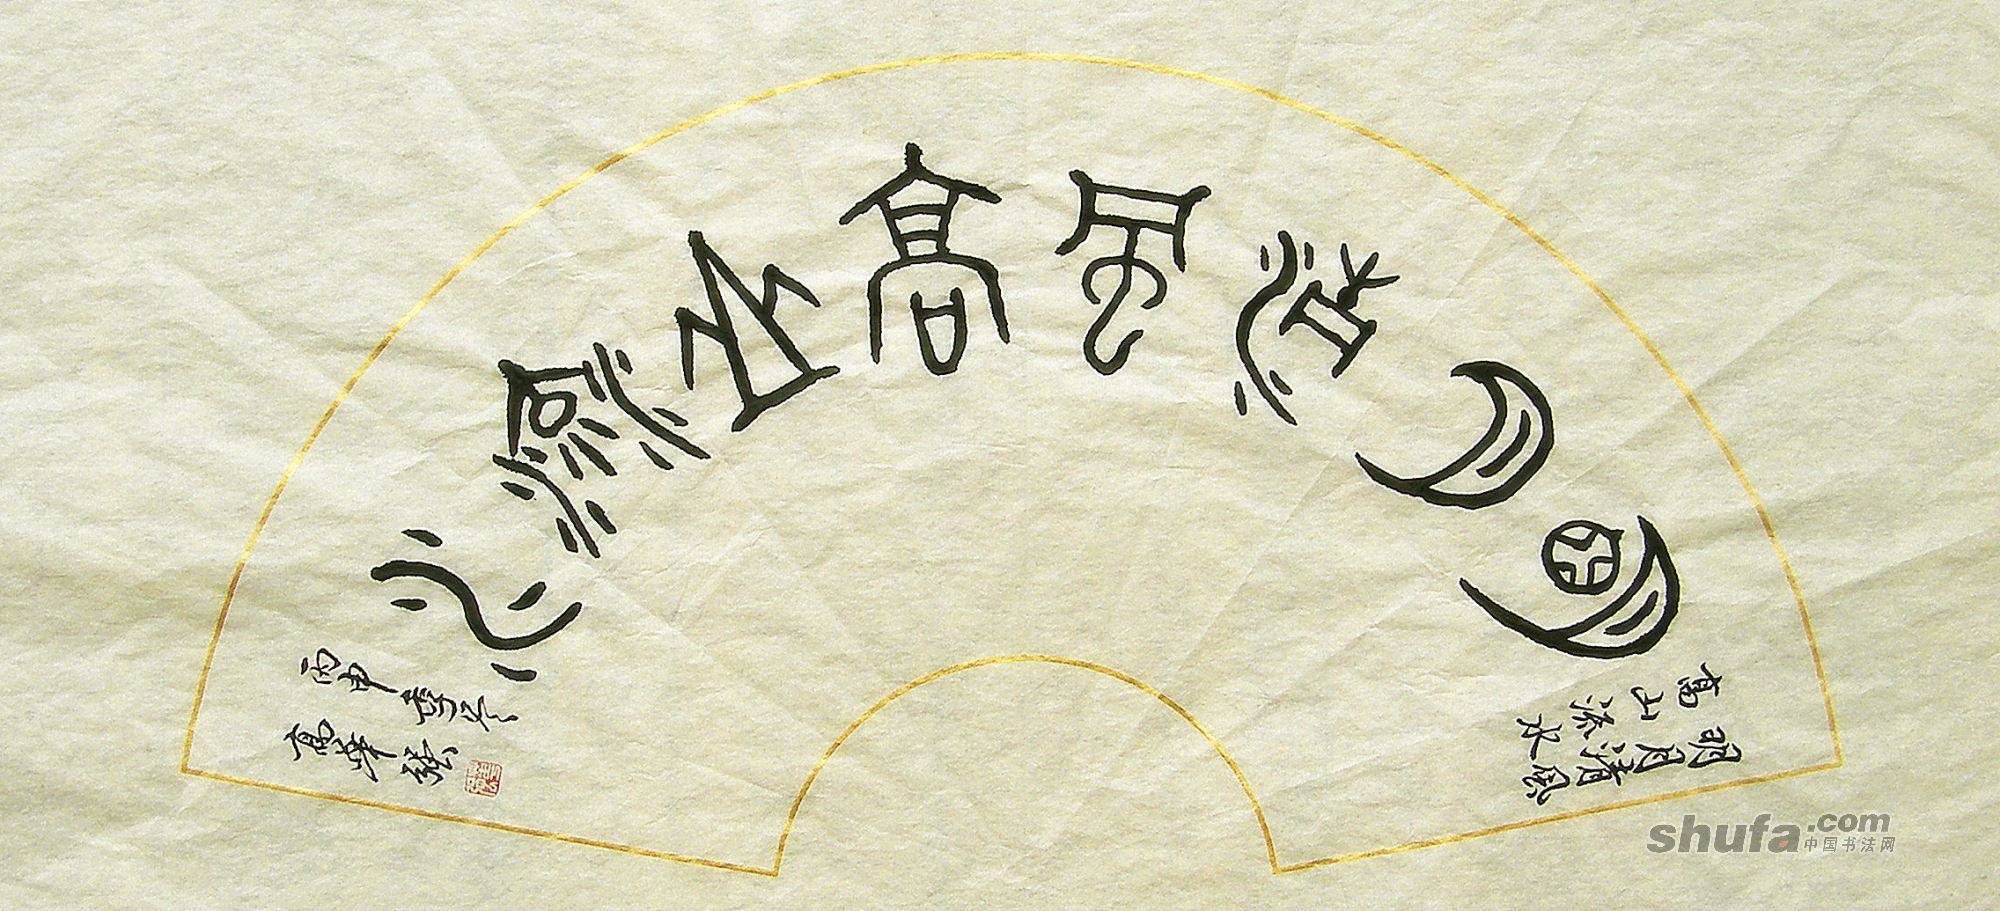 明月清风高山流水
明月清风
高山流水
丙申
高峰
shufa.com
中国书法网